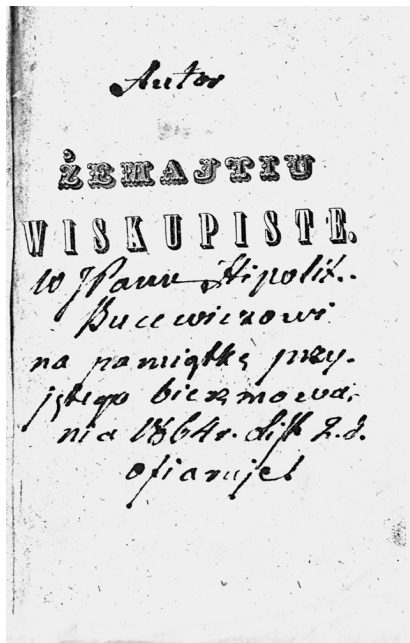 Autor
ŻEMAJTIU
WISKUPISTE.
W JPanu Hipolit..
Bucewiczowi
na pamiątkę przy-
jętego bierzmowa-
nia 1864r. List. 2. d.
ofiaruje